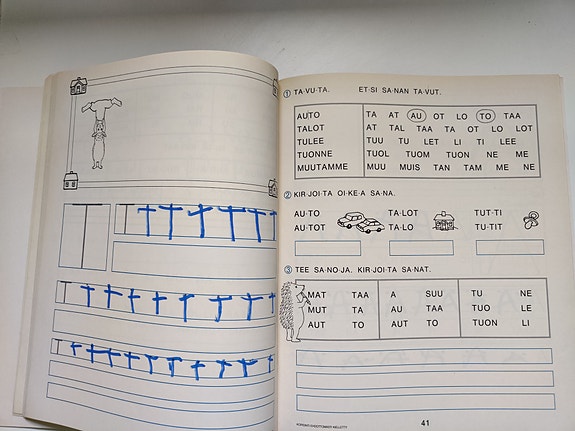 T
T T T T T T T
T T T T T T T T
T T T T T T T T T T
1 TA·VU·TA. ET·SI SA·NAN TA·VUT.
AUTO TA AT AU OT LO TO TAA
TALOT AT TAL TAA TA OT LO LOT
TULEE TUU TU LET LI TI LEE
TUONNE TUOL TUOM TUON NE ME
MUUTAMME MUU MUIS TAN TAM ME NE
2 KIR·JOI·TA OI·KE·A SA·NA.
AU·TO TA·LOT TUT·TI
AU·TOT TA·LO TU·TIT
3 TEE SA·NO·JA. KIR·JOI·TA SA·NAT.
MAT TAA A SUU TU NE
MUT TA AU TAA TUO LE
AUT TO AUT TO TUON LI
KOPIOINTI EHDOTTOMASTI KIELLETTY
41